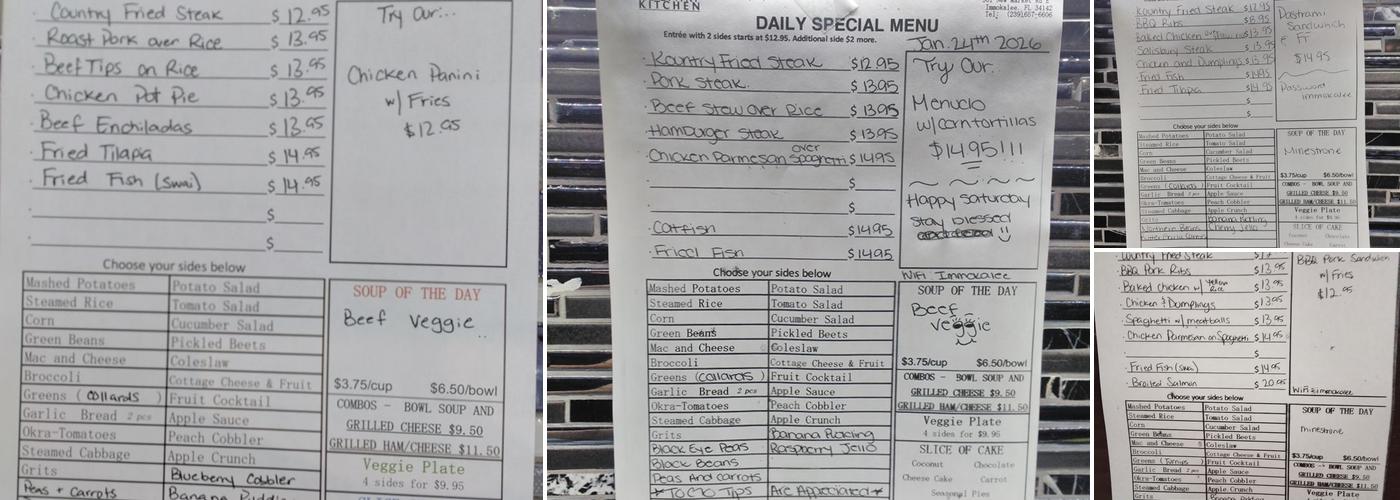 Country Fried Steak $ 12.95
Roast Pork over Rice $ 13.95
Beef Tips on Rice $ 13.95
Chicken Pot Pie $ 13.95
Beef Enchiladas $ 13.95
Fried Tilapia $ 14.95
Fried Fish (Swai) $ 14.95
$
$
Try Our...
Chicken Panini
w/ Fries
$12.95
Choose your sides below
Mashed Potatoes Potato Salad
Steamed Rice Tomato Salad
Corn Cucumber Salad
Green Beans Pickled Beets
Mac and Cheese Coleslaw
Broccoli Cottage Cheese & Fruit
Greens (Collards) Fruit Cocktail
Garlic Bread 2 pcs Apple Sauce
Okra-Tomatoes Peach Cobbler
Steamed Cabbage Apple Crunch
Grits Blueberry Cobbler
Peas + Carrots Banana Pudding
SOUP OF THE DAY
Beef Veggie
$3.75/cup $6.50/bowl
COMBOS - BOWL SOUP AND
GRILLED CHEESE $9.50
GRILLED HAM/CHEESE $11.50
Veggie Plate
4 sides for $9.95
KITCHEN
Immokalee, FL 34142
Tel: (239)657-6606
DAILY SPECIAL MENU
Entrée with 2 sides starts at $12.95. Additional side $2 more.
Jan. 24th 2026
Kountry Fried Steak $12.95
Pork Steak $1395
Beef Stew over Rice $1395
Hamburger Steak $1395
Chicken Parmesan over Spaghetti $1495
$
$
Catfish $1495
Fried Fish $1495
Try Our:
Menudo
w/corn tortillas
$14.95!!!
Happy Saturday
Stay blessed
Wifi Immokalee
Choose your sides below
Mashed Potatoes Potato Salad
Steamed Rice Tomato Salad
Corn Cucumber Salad
Green Beans Pickled Beets
Mac and Cheese Coleslaw
Broccoli Cottage Cheese & Fruit
Greens (Collards) Fruit Cocktail
Garlic Bread 2 pcs Apple Sauce
Okra-Tomatoes Peach Cobbler
Steamed Cabbage Apple Crunch
Grits Banana Pudding
Black Eye Peas Raspberry Jello
Black Beans
Peas and Carrots
*TOGO Tips Are Appreciated*
Beef
Veggie
$3.75/cup $6.50/bowl
COMBOS - BOWL SOUP AND
GRILLED CHEESE $9.50
GRILLED HAM/CHEESE $11.50
Veggie Plate
4 sides for $9.95
SLICE OF CAKE
Coconut Chocolate
Cheese Cake Carrot
Seasonal Pies
Kountry Fried Steak $12.95
BBQ Ribs
Baked Chicken $13.95
Salisbury Steak $13.95
Chicken and Dumplings $13.95
Fried Fish $14.95
Fried Tilapia $14.95
$
Pastrami
Sandwich
& FF
$14.95
Password
immokalee
Choose your sides below
Mashed Potatoes Potato Salad
Steamed Rice Tomato Salad
Corn Cucumber Salad
Green Beans Pickled Beets
Mac and Cheese Coleslaw
Broccoli Cottage Cheese & Fruit
Greens (Collards) Fruit Cocktail
Garlic Bread 2 pcs Apple Sauce
Okra-Tomatoes Peach Cobbler
Steamed Cabbage Apple Crunch
Grits Banana Pudding
Northern Beans Cherry Jello
SOUP OF THE DAY
Minestrone
$3.75/cup $6.50/bowl
COMBOS - BOWL SOUP AND
GRILLED CHEESE $9.50
GRILLED HAM/CHEESE $11.50
Veggie Plate
4 sides for $9.95
SLICE OF CAKE
Coconut Chocolate
Country Fried Steak
BBQ Pork Ribs $13.95
Baked Chicken w/ Yellow Rice $13.95
Chicken & Dumplings $13.95
Spaghetti w/ meatballs $13.95
Chicken Parmesan on Spaghetti $14.95
$
Fried Fish (Swai) $14.95
Broiled Salmon $20.95
BBQ Pork Sandwich
w/ Fries
$12.95
Wifi: immokalee
Choose your sides below
Mashed Potatoes Potato Salad
Steamed Rice Tomato Salad
Corn Cucumber Salad
Green Beans Pickled Beets
Mac and Cheese Coleslaw
Broccoli Cottage Cheese & Fruit
Greens (Turnips) Fruit Cocktail
Garlic Bread 2 pcs Apple Sauce
Okra-Tomatoes Peach Cobbler
Steamed Cabbage Apple Crunch
Grits
SOUP OF THE DAY
Minestrone
$3.75/cup $6.50/bowl
COMBOS - BOWL SOUP AND
GRILLED CHEESE $9.50
GRILLED HAM/CHEESE $11.50
Veggie Plate
4 sides for $9.95